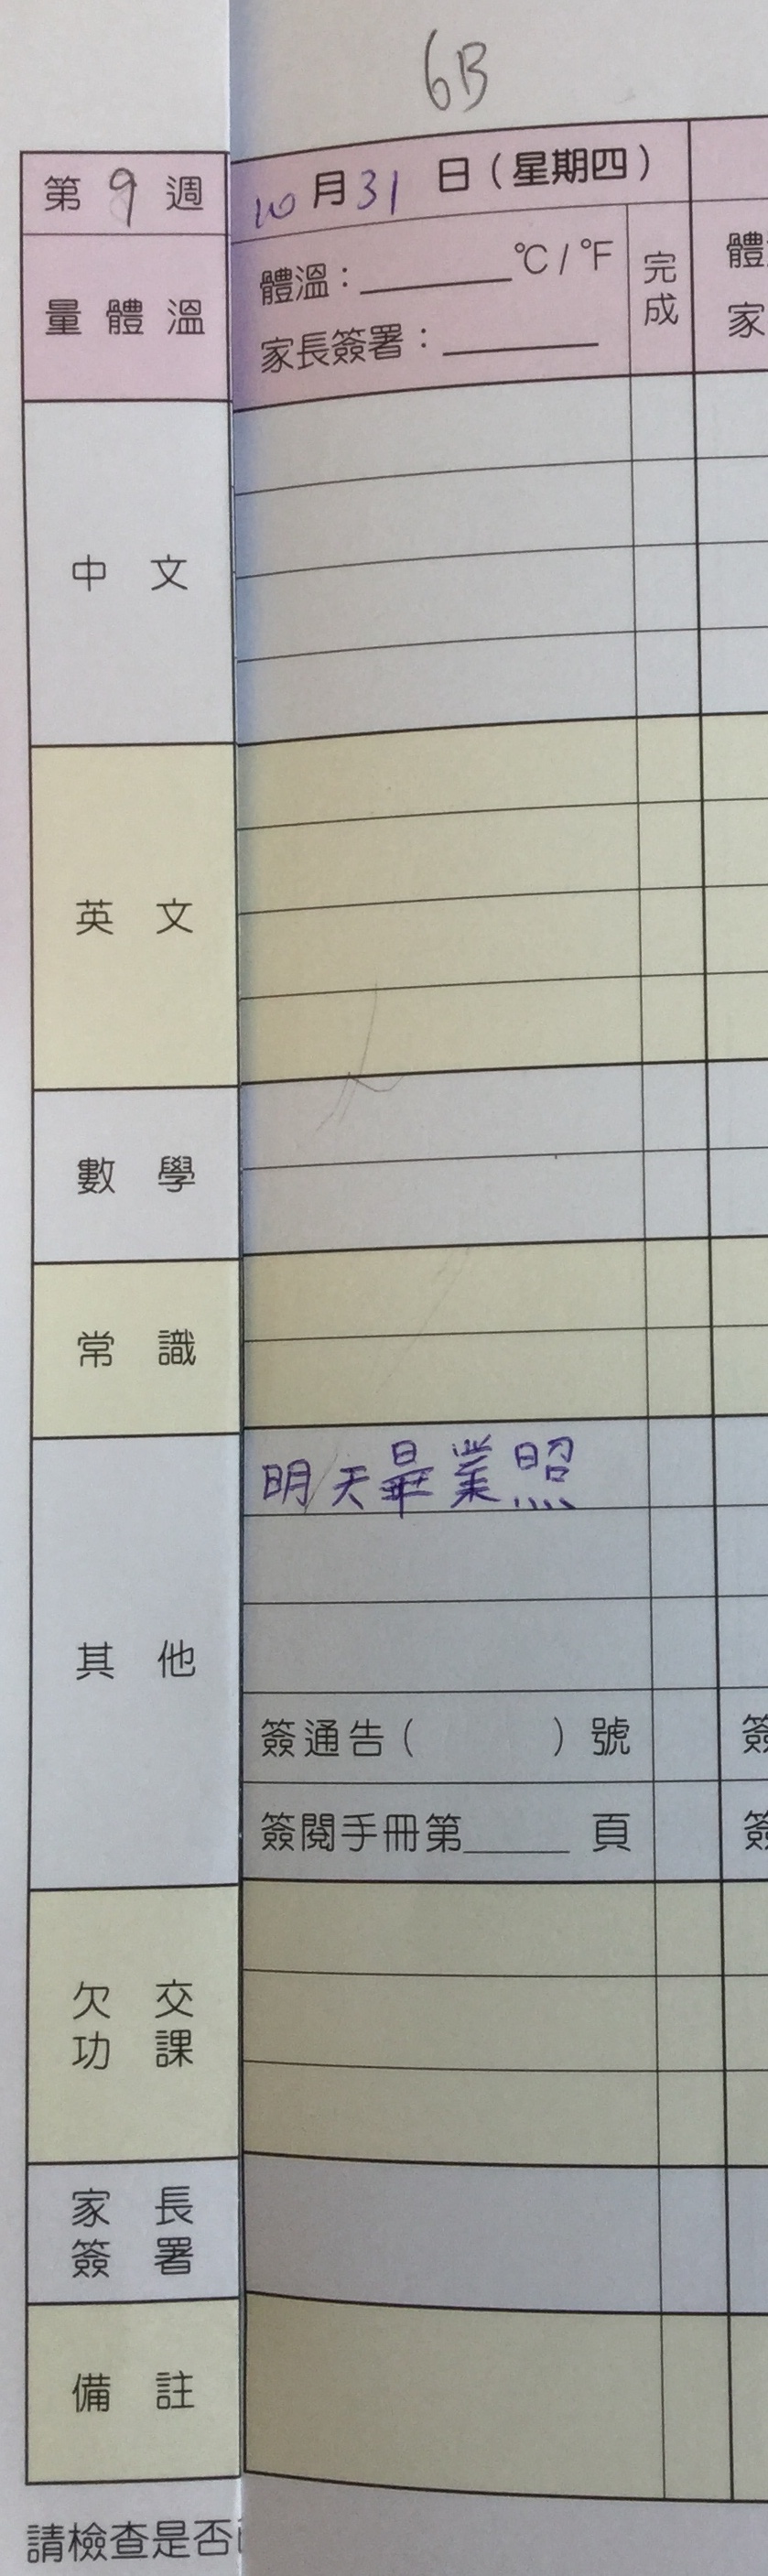 6B
第 9 週
10 月 31 日（星期四）
量 體 溫
體溫：______℃ / ℉
家長簽署：______
完成
體
家
中 文
英 文
數 學
常 識
其 他
明天畢業照
簽通告（ ）號
簽
簽閱手冊第_____ 頁
簽
欠 交
功 課
家 長
簽 署
備 註
請檢查是否